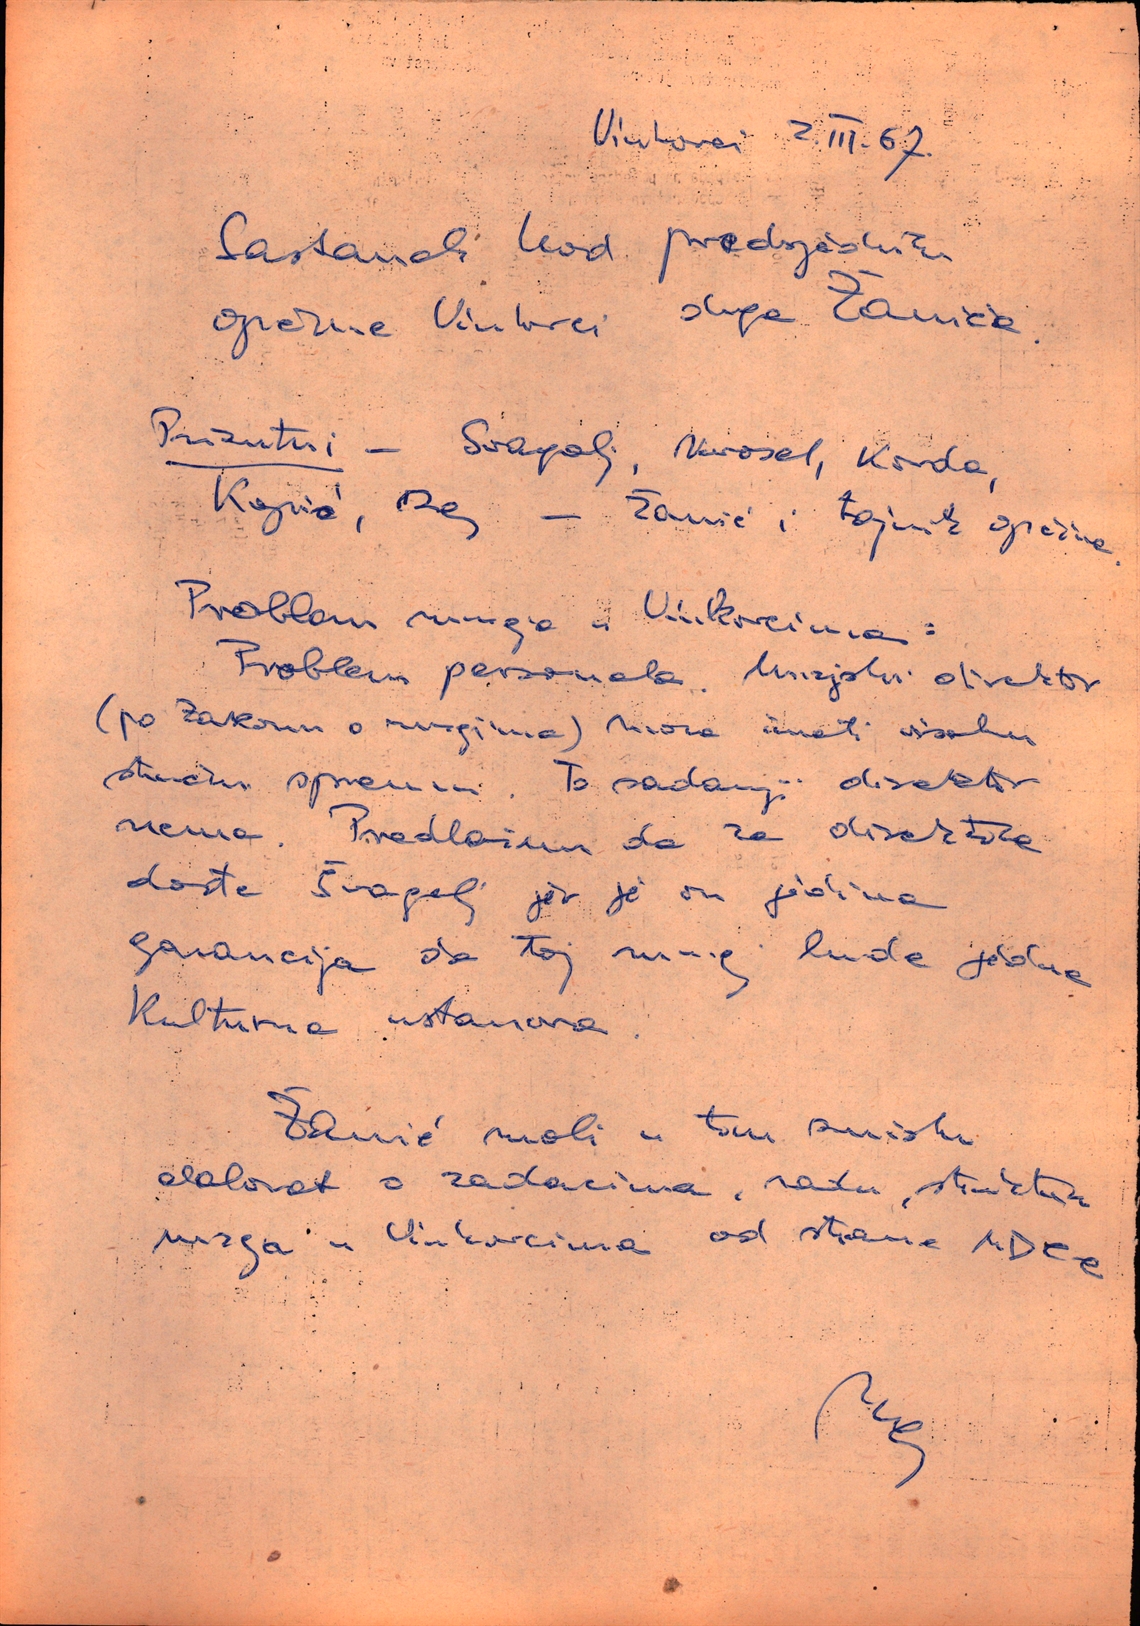 Vinkovci 2.III.67.
Sastanak kod predsjednika
općine Vinkovci druga Žanića.
Prisutni – Švagelj, Korda,
Kopić, – Žanić i tajnik općine.
Problem muzeja u Vinkovcima:
Problem personala. Muzejski direktor
(po Zakonu o muzejima) mora imati visoku
stručnu spremu. To sadanji direktor
nema. Predlažem da za direktora
dođe Švagelj jer je on jedina
garancija da taj muzej bude jedna
Kulturna ustanova.
Žanić moli u tom smislu
elaborat o zadacima, radu, strukturi
muzeja u Vinkovcima od strane MDCa